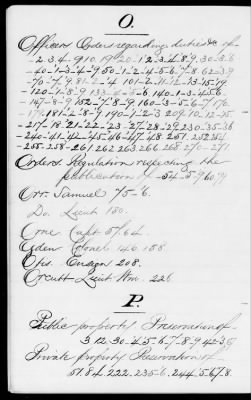 O.
Officers Orders regarding duties &c of
-2.3.4-9.10.19.20-1.2.3-4.8-9.30-3.6
-40-1-3-4-9.50-1-2-4-5-6-7-8 62-3.9
-70-7-9.81-2-4 101-2-11-12-13-15-19
-120-1-8-9 133-4-5-6.140-1-3-4 5-6
-147-8-9 152-7-8-9.160-3-5-6-7 176
181-2-8-9 190-1-2-3 209.10-12-15
-217.18.21-22-23-27.28-29.230-35-36
-240-41-42-45-46-47-48 251.252 54
-255-258-261 262 263 266 268.270-271
Orders Regulation respecting the
publication of -54-5-9 60,91
Orr. Samuel 75-6.
Do. Lieut 180.
Orne Capt 57.64.
Ogden Colonel 146.158.
Ensign 208.
Orcutt Lieut Wm. 226
P.
Public property Preservation of
3.12.30-4-5-6-7-8-9.42-35
Private property Preservation of
57.84.222.235-6.244.5-67.8.